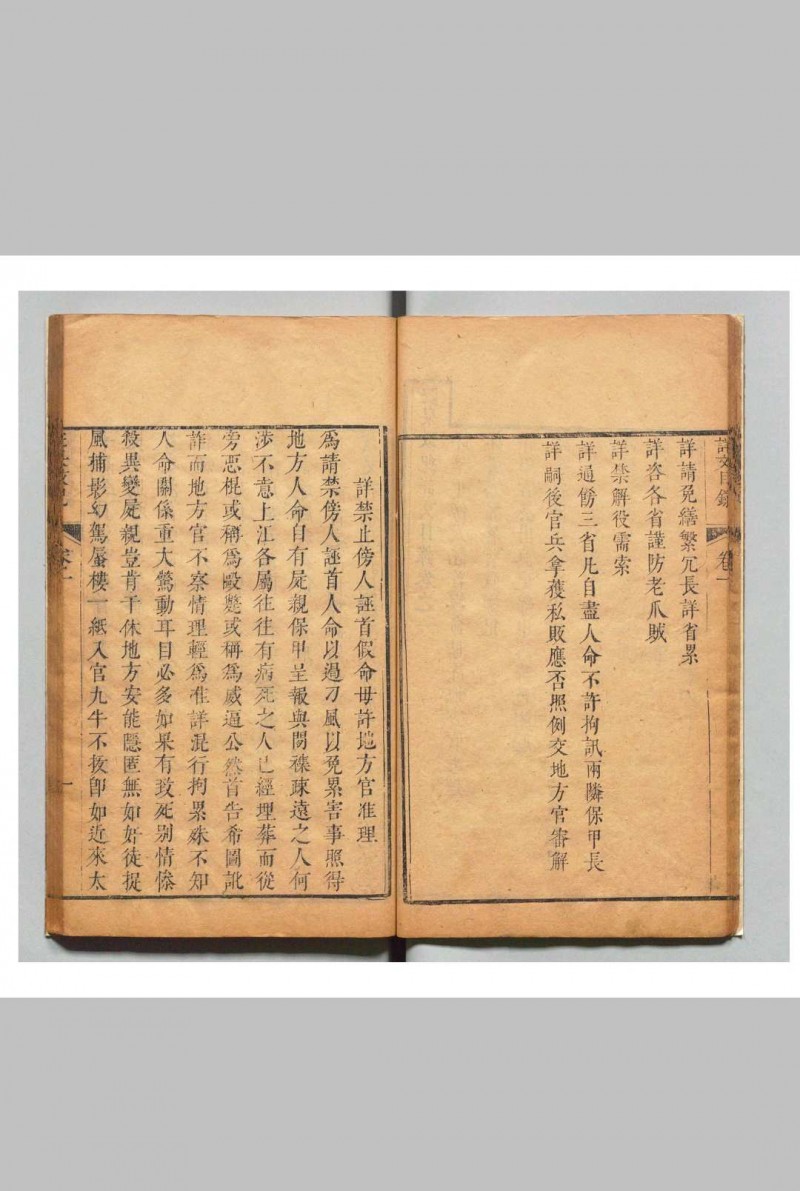 詳文目錄
卷一
詳請免繕繫冗長詳省累
詳咨各省謹防老爪賊
詳禁解役需索
詳通飭三省凡自盡人命不許拘訊兩隣保甲長
詳嗣後官兵拿獲私販應否照例交地方官審解
詳禁止傍人誣首假命毋許地方官准理
爲請禁傍人誣首人命以過刁風以免累害事照得
地方人命自有屍親保甲呈報與閒襍疎遠之人何
涉不意上江各屬往往有病死之人已經理葬而從
旁惡棍或稱爲毆斃或稱爲威逼公然首告希圖訛
詐而地方官不察情理輕爲准詳混行拘累殊不知
人命關係重大驚動耳目必多如果有致死别情慘
殺異變屍親豈肯干休地方安能隱匿無如奸徒捉
風捕影幻駕蜃樓一紙入官九牛不拔卽如近來太
一